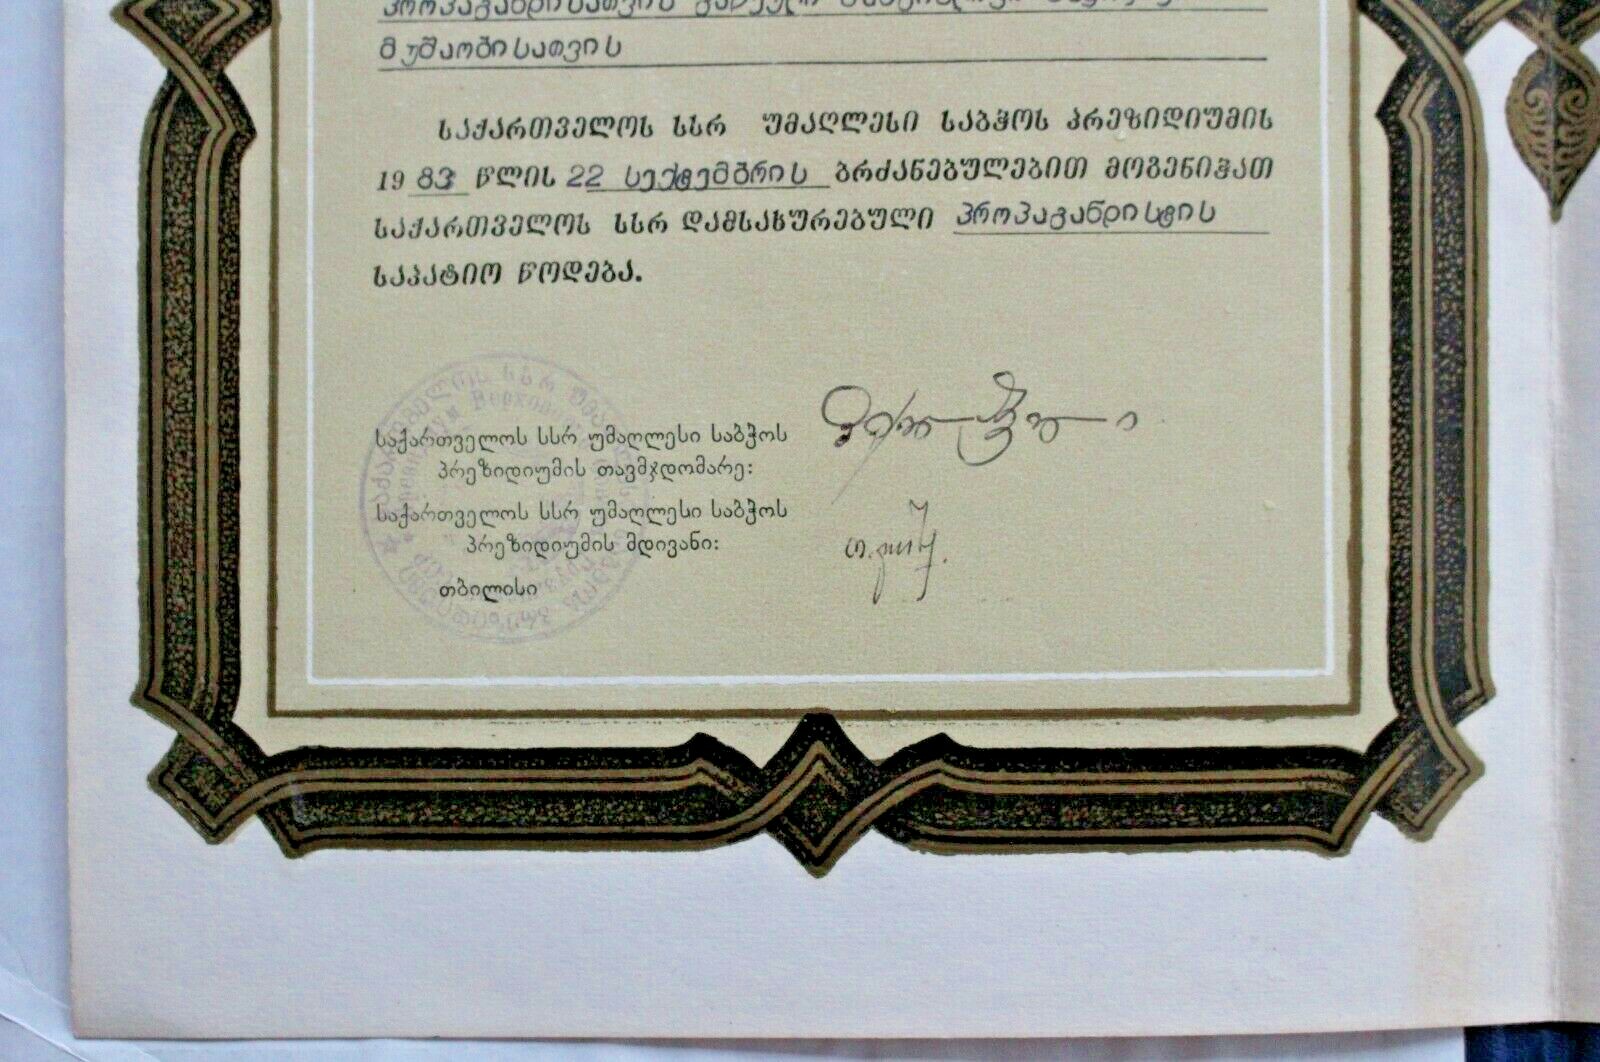 პროპაგანდისათვის
მუშაობისათვის
საქართველოს სსრ უმაღლესი საბჭოს პრეზიდიუმის
1983 წლის 22 სექტემბრის ბრძანებულებით მოგენიჭათ
საქართველოს სსრ დამსახურებული პროპაგანდისტის
საპატიო წოდება.
საქართველოს სსრ უმაღლესი საბჭოს
პრეზიდიუმის თავმჯდომარე:
საქართველოს სსრ უმაღლესი საბჭოს
პრეზიდიუმის მდივანი:
თბილისი